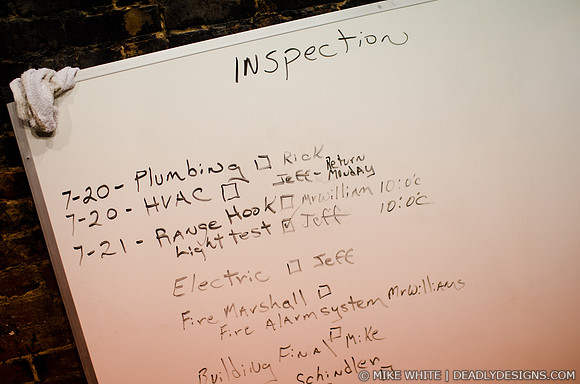 INSpection
7-20 - Plumbing Rick
7-20 - HVAC Jeff - Return Monday
7-21 - Range Hook MrWilliam 10:00
Light test Jeff 10:00
Electric Jeff
Fire Marshall
Fire Alarm system MrWilliams
Building Final Mike
Schindler
© MIKE WHITE | DEADLYDESIGNS.COM